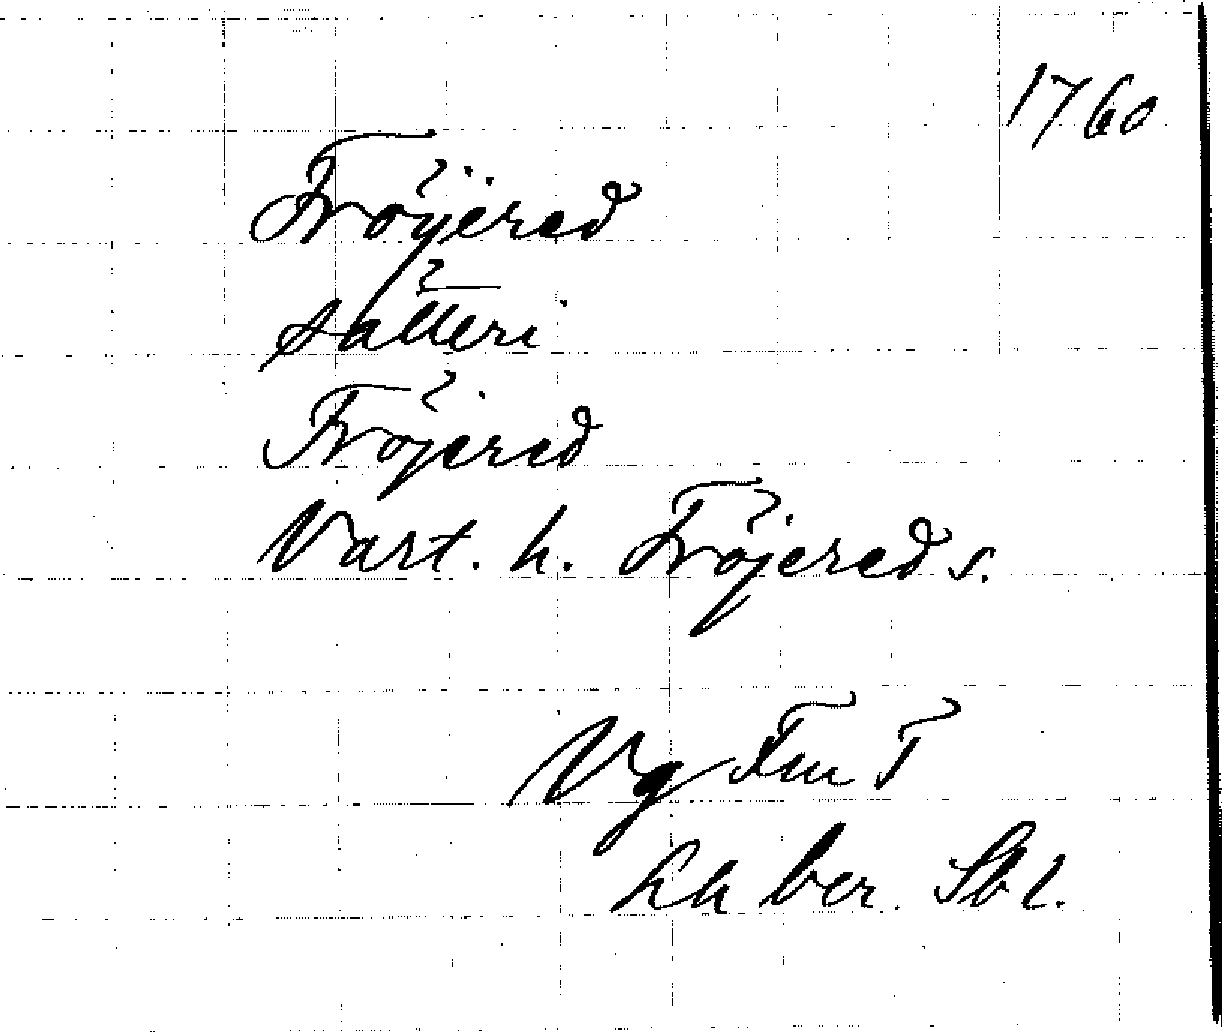 1760
Fröÿered
säteri
Fröjered
Vart. h. Fröjereds.
Vg Fm T
Lh ber. Sbl.